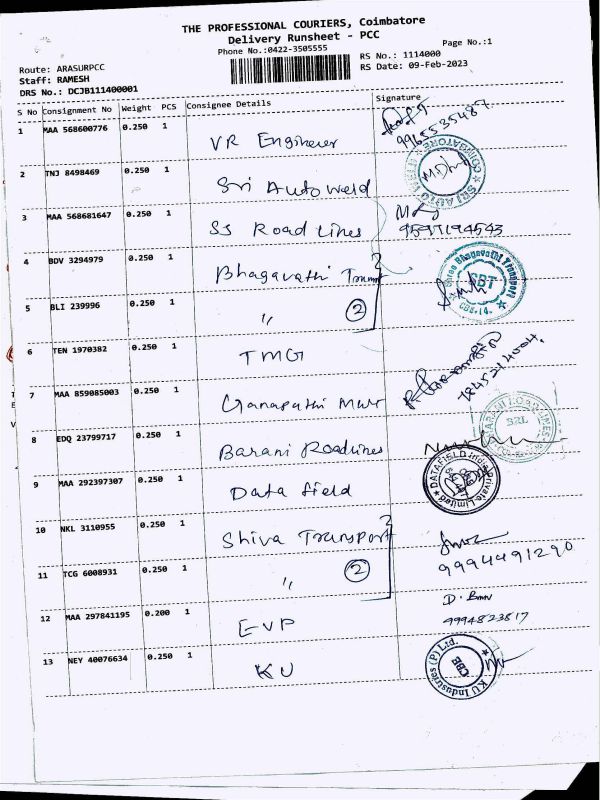 THE PROFESSIONAL COURIERS, Coimbatore
Delivery Runsheet - PCC
Phone No.:0422-3505555
Page No.:1
Route: ARASURPCC
RS No.: 1114000
Staff: RAMESH
RS Date: 09-Feb-2023
DRS No.: DCJB111400001
S No Consignment No Weight PCS Consignee Details Signature
1 MAA 568600776 0.250 1 VR Engineer
9965535487
2 TNJ 8498469 0.250 1 Sri Auto Weld
COIMBATORE SRI AUTO
3 MAA 568681647 0.250 1 SS Road Lines
9597194543
4 BDV 3294979 0.250 1 Bhagavathi Transport
Shree Bhagavathi Transport
SBT
CBE-14.
5 BLI 239996 0.250 1 " 2
6 TEN 1970382 0.250 1 TMG
7845214004
7 MAA 859085003 0.250 1 Ganapathi Mwr
8 EDQ 23799717 0.250 1 Barani Roadlines
BRL
9 MAA 292397307 0.250 1 Data field
DATAFIELD India Private Limited
10 NKL 3110955 0.250 1 Shiva Transport
9994491290
11 TCG 6008931 0.250 1 " 2
12 MAA 297841195 0.200 1 EVP
9994823817
13 NEY 40076634 0.250 1 KU
KU Industries (P) Ltd.
CBE